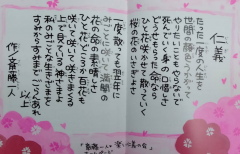 仁義
たった一度の人生を
世間の顔色うかがって
やりたいこともやらないで
死んでいく身の口惜しさ
どうせもらった命なら
ひと花咲かせて散っていく
桜の花のいさぎよさ
一度散っても翌年に
みごとに咲いて満開の
花の命の素晴しさ
ひと花どころか百花も
咲いて咲いて咲きまくる
上で見ている神さまよ
私のみごとな生きざまを
すみからすみまでごらんあれ
以上
作 斎藤一人